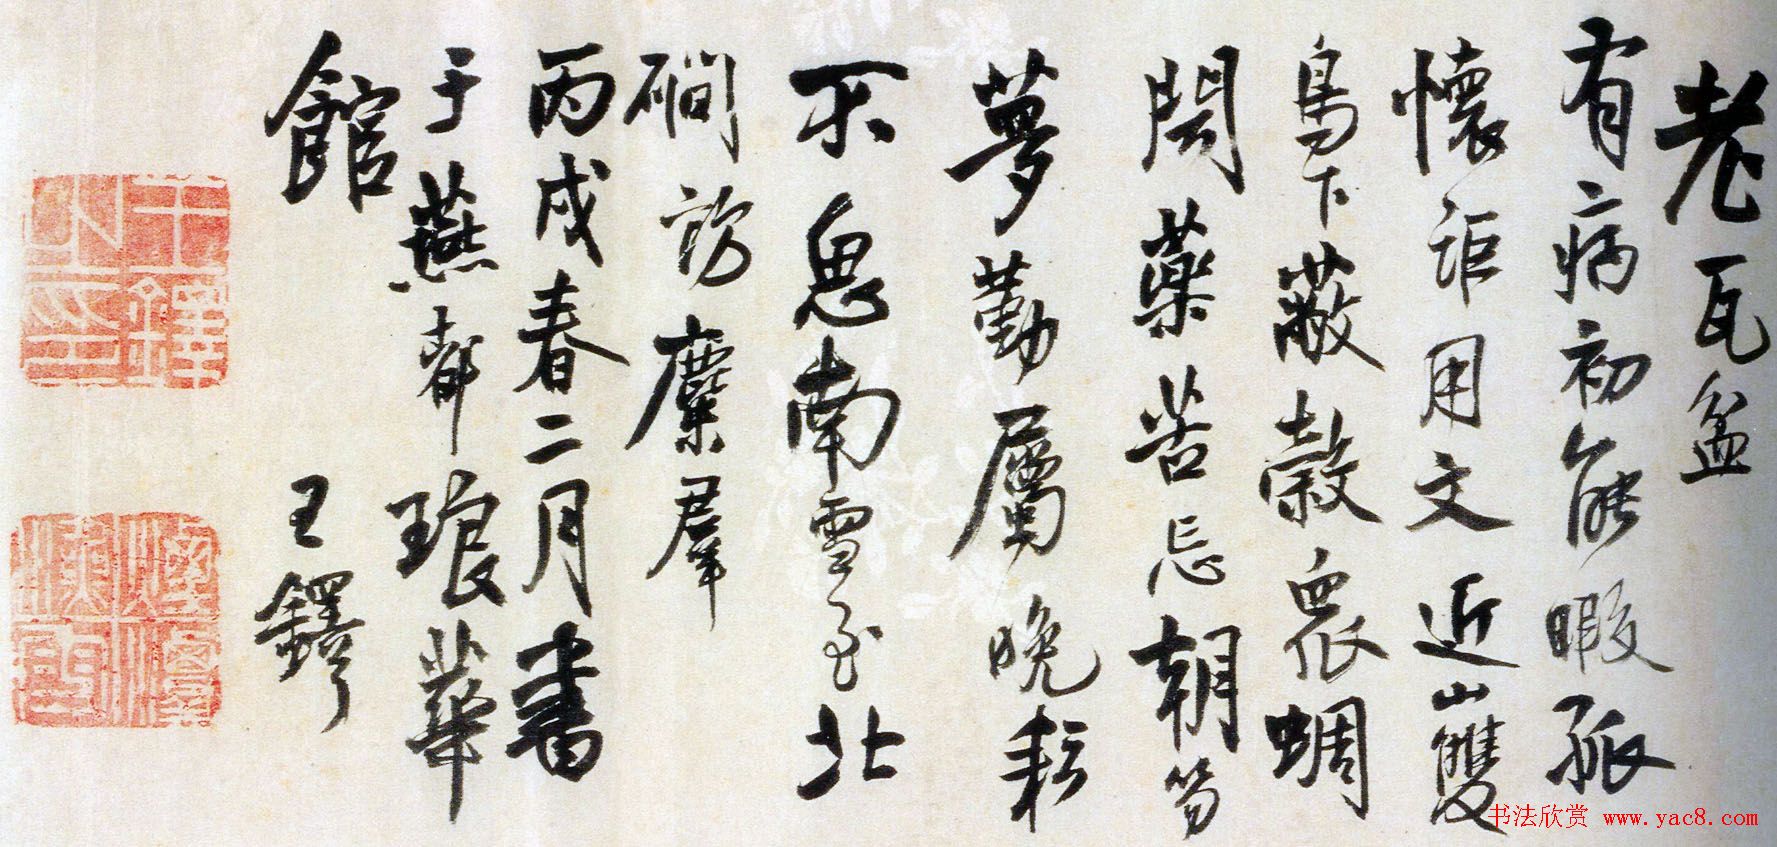 老瓦盆
有病初能暇孤
懷詎用文近山雙
鳥下蔽穀衆蜩
聞藥苦忘朝笏
夢勤屬晚耘
不思南雪至北
磵訪麋羣
丙戌春二月書
于燕都琅華
館 王鐸
王鐸之印
书法欣赏 www.yac8.com